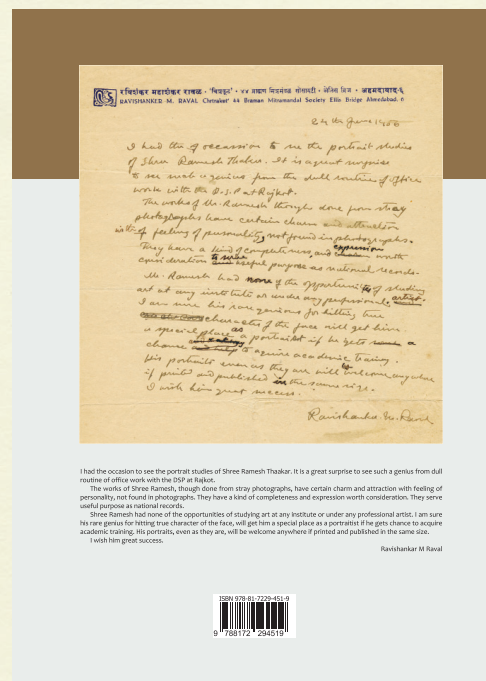 रविशंकर महाशंकर रावळ · 'चित्रकूट' · ४४ ब्राह्मण मित्रमंडळ सोसायटी · एलिस ब्रिज · अहमदाबाद-६
RAVISHANKER M. RAVAL Chitrakut' 44 Braman Mitramandal Society Ellis Bridge Ahmedabad. 6
24th June 1956
I had the occassion to see the portrait studies
of Shree Ramesh Thakar. It is a great surprise
to see such a genius from the dull routine of office
work with the D.S.P at Rajkot.
The works of Mr. Ramesh though done from stray
photographs have certain charm and attraction
with of feeling of personality, not found in photographs.
They have a kind of completeness, and expression worth
consideration to serve useful purpose as national records.
Mr. Ramesh had none of the opportunities of studying
art at any institute or under any professional artist.
I am sure his rare genious for hitting true
character of the face will get him
a special place as a portraitist if he gets a
chance to aquire academic training.
His portraits even as they are will be welcome anywhere
if printed and published in the same size.
I wish him great success.
Ravishanker M. Raval
I had the occasion to see the portrait studies of Shree Ramesh Thaakar. It is a great surprise to see such a genius from dull
routine of office work with the DSP at Rajkot.
The works of Shree Ramesh, though done from stray photographs, have certain charm and attraction with feeling of
personality, not found in photographs. They have a kind of completeness and expression worth consideration. They serve
useful purpose as national records.
Shree Ramesh had none of the opportunities of studying art at any institute or under any professional artist. I am sure
his rare genius for hitting true character of the face, will get him a special place as a portraitist if he gets chance to acquire
academic training. His portraits, even as they are, will be welcome anywhere if printed and published in the same size.
I wish him great success.
Ravishankar M Raval
ISBN 978-81-7229-451-9
9 788172 294519